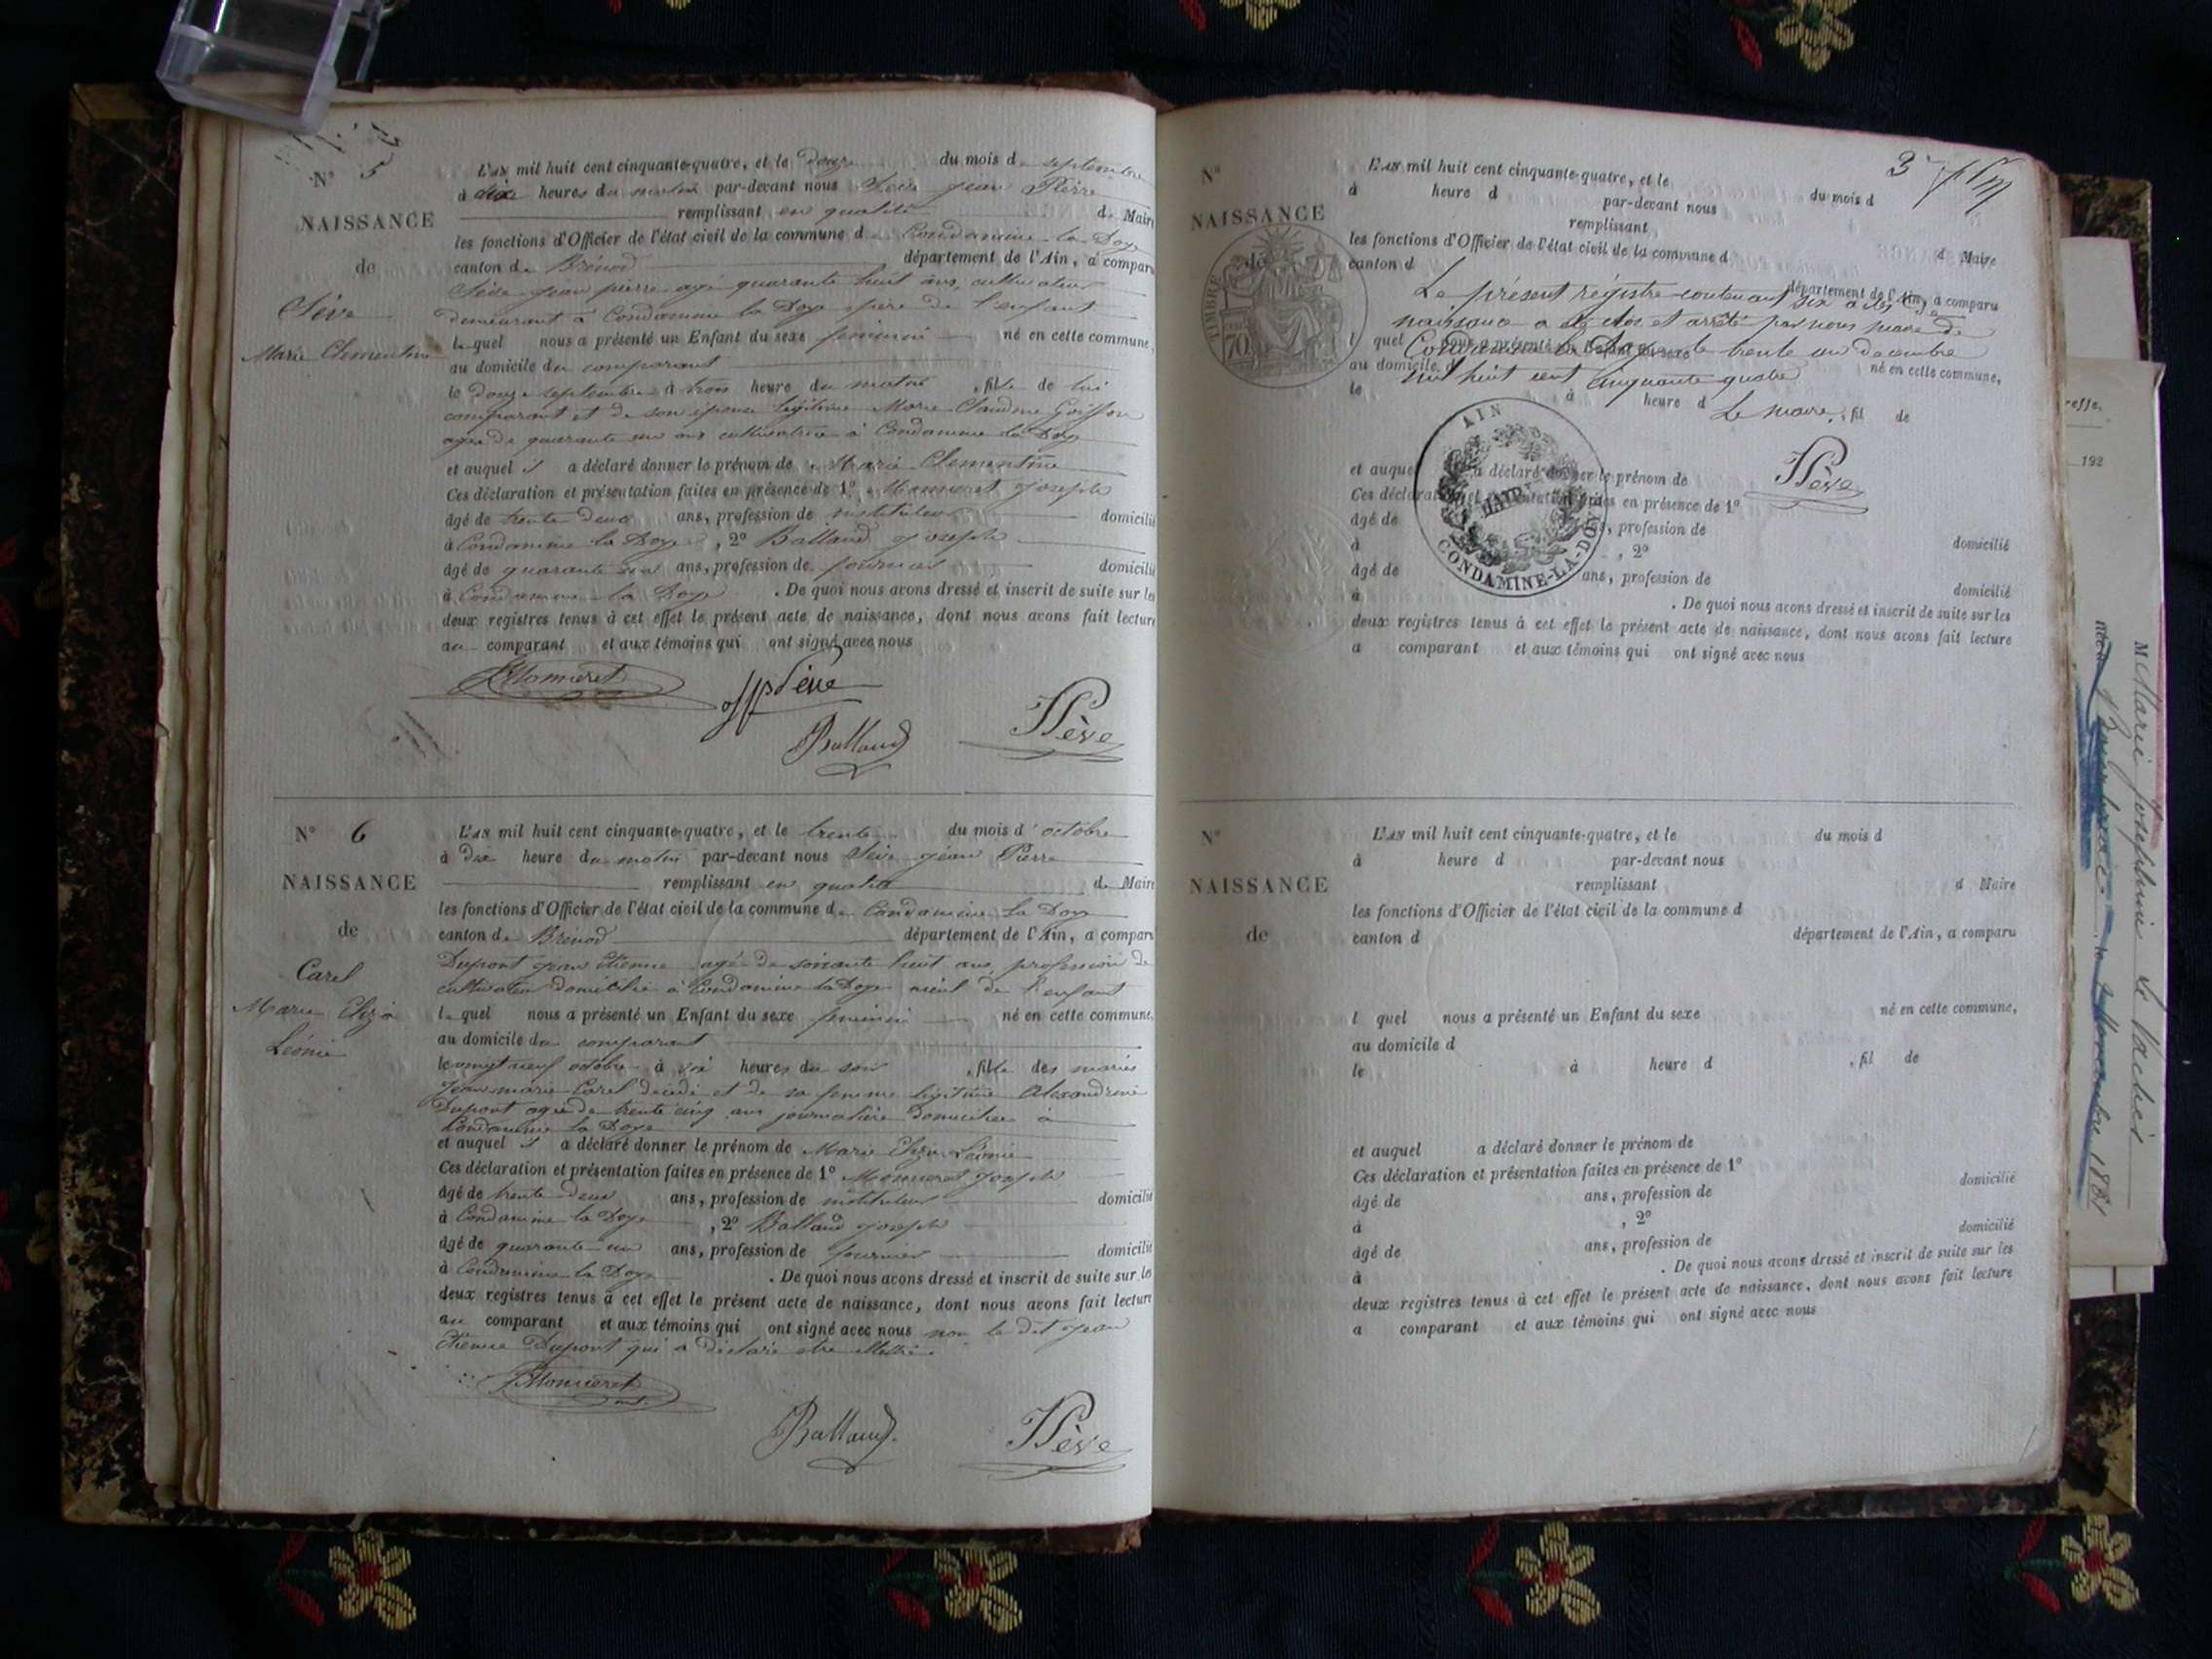 N° 5
NAISSANCE
de
Sève
Marie Clementine
L'AN mil huit cent cinquante-quatre, et le douze du mois de septembre
à dix heures du matin par-devant nous Sève jean Pierre
remplissant en qualité de Maire
les fonctions d'Officier de l'état civil de la commune de Condamine la Doye
canton de Brénod département de l'Ain, a comparu
Sève jean pierre agé quarante huit ans, cultivateur
demeurant à Condamine la Doye père de l'enfant
lequel nous a présenté un Enfant du sexe feminin né en cette commune,
au domicile du comparant
le douze septembre à trois heure du matin, fille de lui
comparant et de son épouse légitime Marie Claudine
agée de quarante un ans cultivatrice à Condamine la Doye
et auquel il a déclaré donner le prénom de Marie Clementine
Ces déclaration et présentation faites en présence de 1° Monneret Joseph
âgé de trente deux ans, profession de instituteur domicilié
à Condamine la Doye, 2° Balland joseph
âgé de quarante un ans, profession de fournier domicilié
à Condamine la Doye. De quoi nous avons dressé et inscrit de suite sur les
deux registres tenus à cet effet le présent acte de naissance, dont nous avons fait lecture
au comparant et aux témoins qui ont signé avec nous
Monneret
Sève
Balland
Sève
N° 6
NAISSANCE
de
Carel
Marie Eliza
Léonie
L'AN mil huit cent cinquante-quatre, et le trente du mois d'octobre
à dix heure du matin par-devant nous Sève jean Pierre
remplissant en qualité de Maire
les fonctions d'Officier de l'état civil de la commune de Condamine La Doye
canton de Brénod département de l'Ain, a comparu
Dupont jean Etienne agé de soixante huit ans, profession de
cultivateur domicilié à Condamine la Doye aieul de l'enfant
lequel nous a présenté un Enfant du sexe feminin né en cette commune,
au domicile du comparant
le vingt neuf octobre à six heures du soir, fille des mariés
Jean marie Carel décédé et de sa femme légitime Alexandrine
Dupont agée de trente cinq ans journalière domiciliée à
Condamine la Doye
et auquel il a déclaré donner le prénom de Marie Eliza Léonie
Ces déclaration et présentation faites en présence de 1° Monneret Joseph
âgé de trente deux ans, profession de instituteur domicilié
à Condamine la Doye, 2° Balland joseph
âgé de quarante un ans, profession de fournier domicilié
à Condamine la Doye. De quoi nous avons dressé et inscrit de suite sur les
deux registres tenus à cet effet le présent acte de naissance, dont nous avons fait lecture
au comparant et aux témoins qui ont signé avec nous non le dit jean
Etienne Dupont qui a déclaré etre illettré.
Monneret
Balland
Sève
3
N°
NAISSANCE
de
TIMBRE
70
L'AN mil huit cent cinquante-quatre, et le du mois d
à heure d par-devant nous
remplissant d Maire
les fonctions d'Officier de l'état civil de la commune d
canton d département de l'Ain, a comparu
Le présent régistre contenant six actes de
naissance a été clos et arrêté par nous maire de
l quel nous a présenté un Enfant du sexe né en cette commune,
Condamine la Doye le trente un decembre
au domicile d
mil huit cent cinquante quatre
le à heure d , fil de
Le maire,
Sève
AIN
MAIRIE
CONDAMINE-LA-DOYE
et auquel a déclaré donner le prénom de
Ces déclaration et présentation faites en présence de 1°
âgé de ans, profession de domicilié
à , 2°
âgé de ans, profession de domicilié
à . De quoi nous avons dressé et inscrit de suite sur les
deux registres tenus à cet effet le présent acte de naissance, dont nous avons fait lecture
a comparant et aux témoins qui ont signé avec nous
N°
NAISSANCE
de
L'AN mil huit cent cinquante-quatre, et le du mois d
à heure d par-devant nous
remplissant d Maire
les fonctions d'Officier de l'état civil de la commune d
canton d département de l'Ain, a comparu
l quel nous a présenté un Enfant du sexe né en cette commune,
au domicile d
le à heure d , fil de
et auquel a déclaré donner le prénom de
Ces déclaration et présentation faites en présence de 1°
âgé de ans, profession de domicilié
à , 2°
âgé de ans, profession de domicilié
à . De quoi nous avons dressé et inscrit de suite sur les
deux registres tenus à cet effet le présent acte de naissance, dont nous avons fait lecture
a comparant et aux témoins qui ont signé avec nous
192
M Marie Joséphine